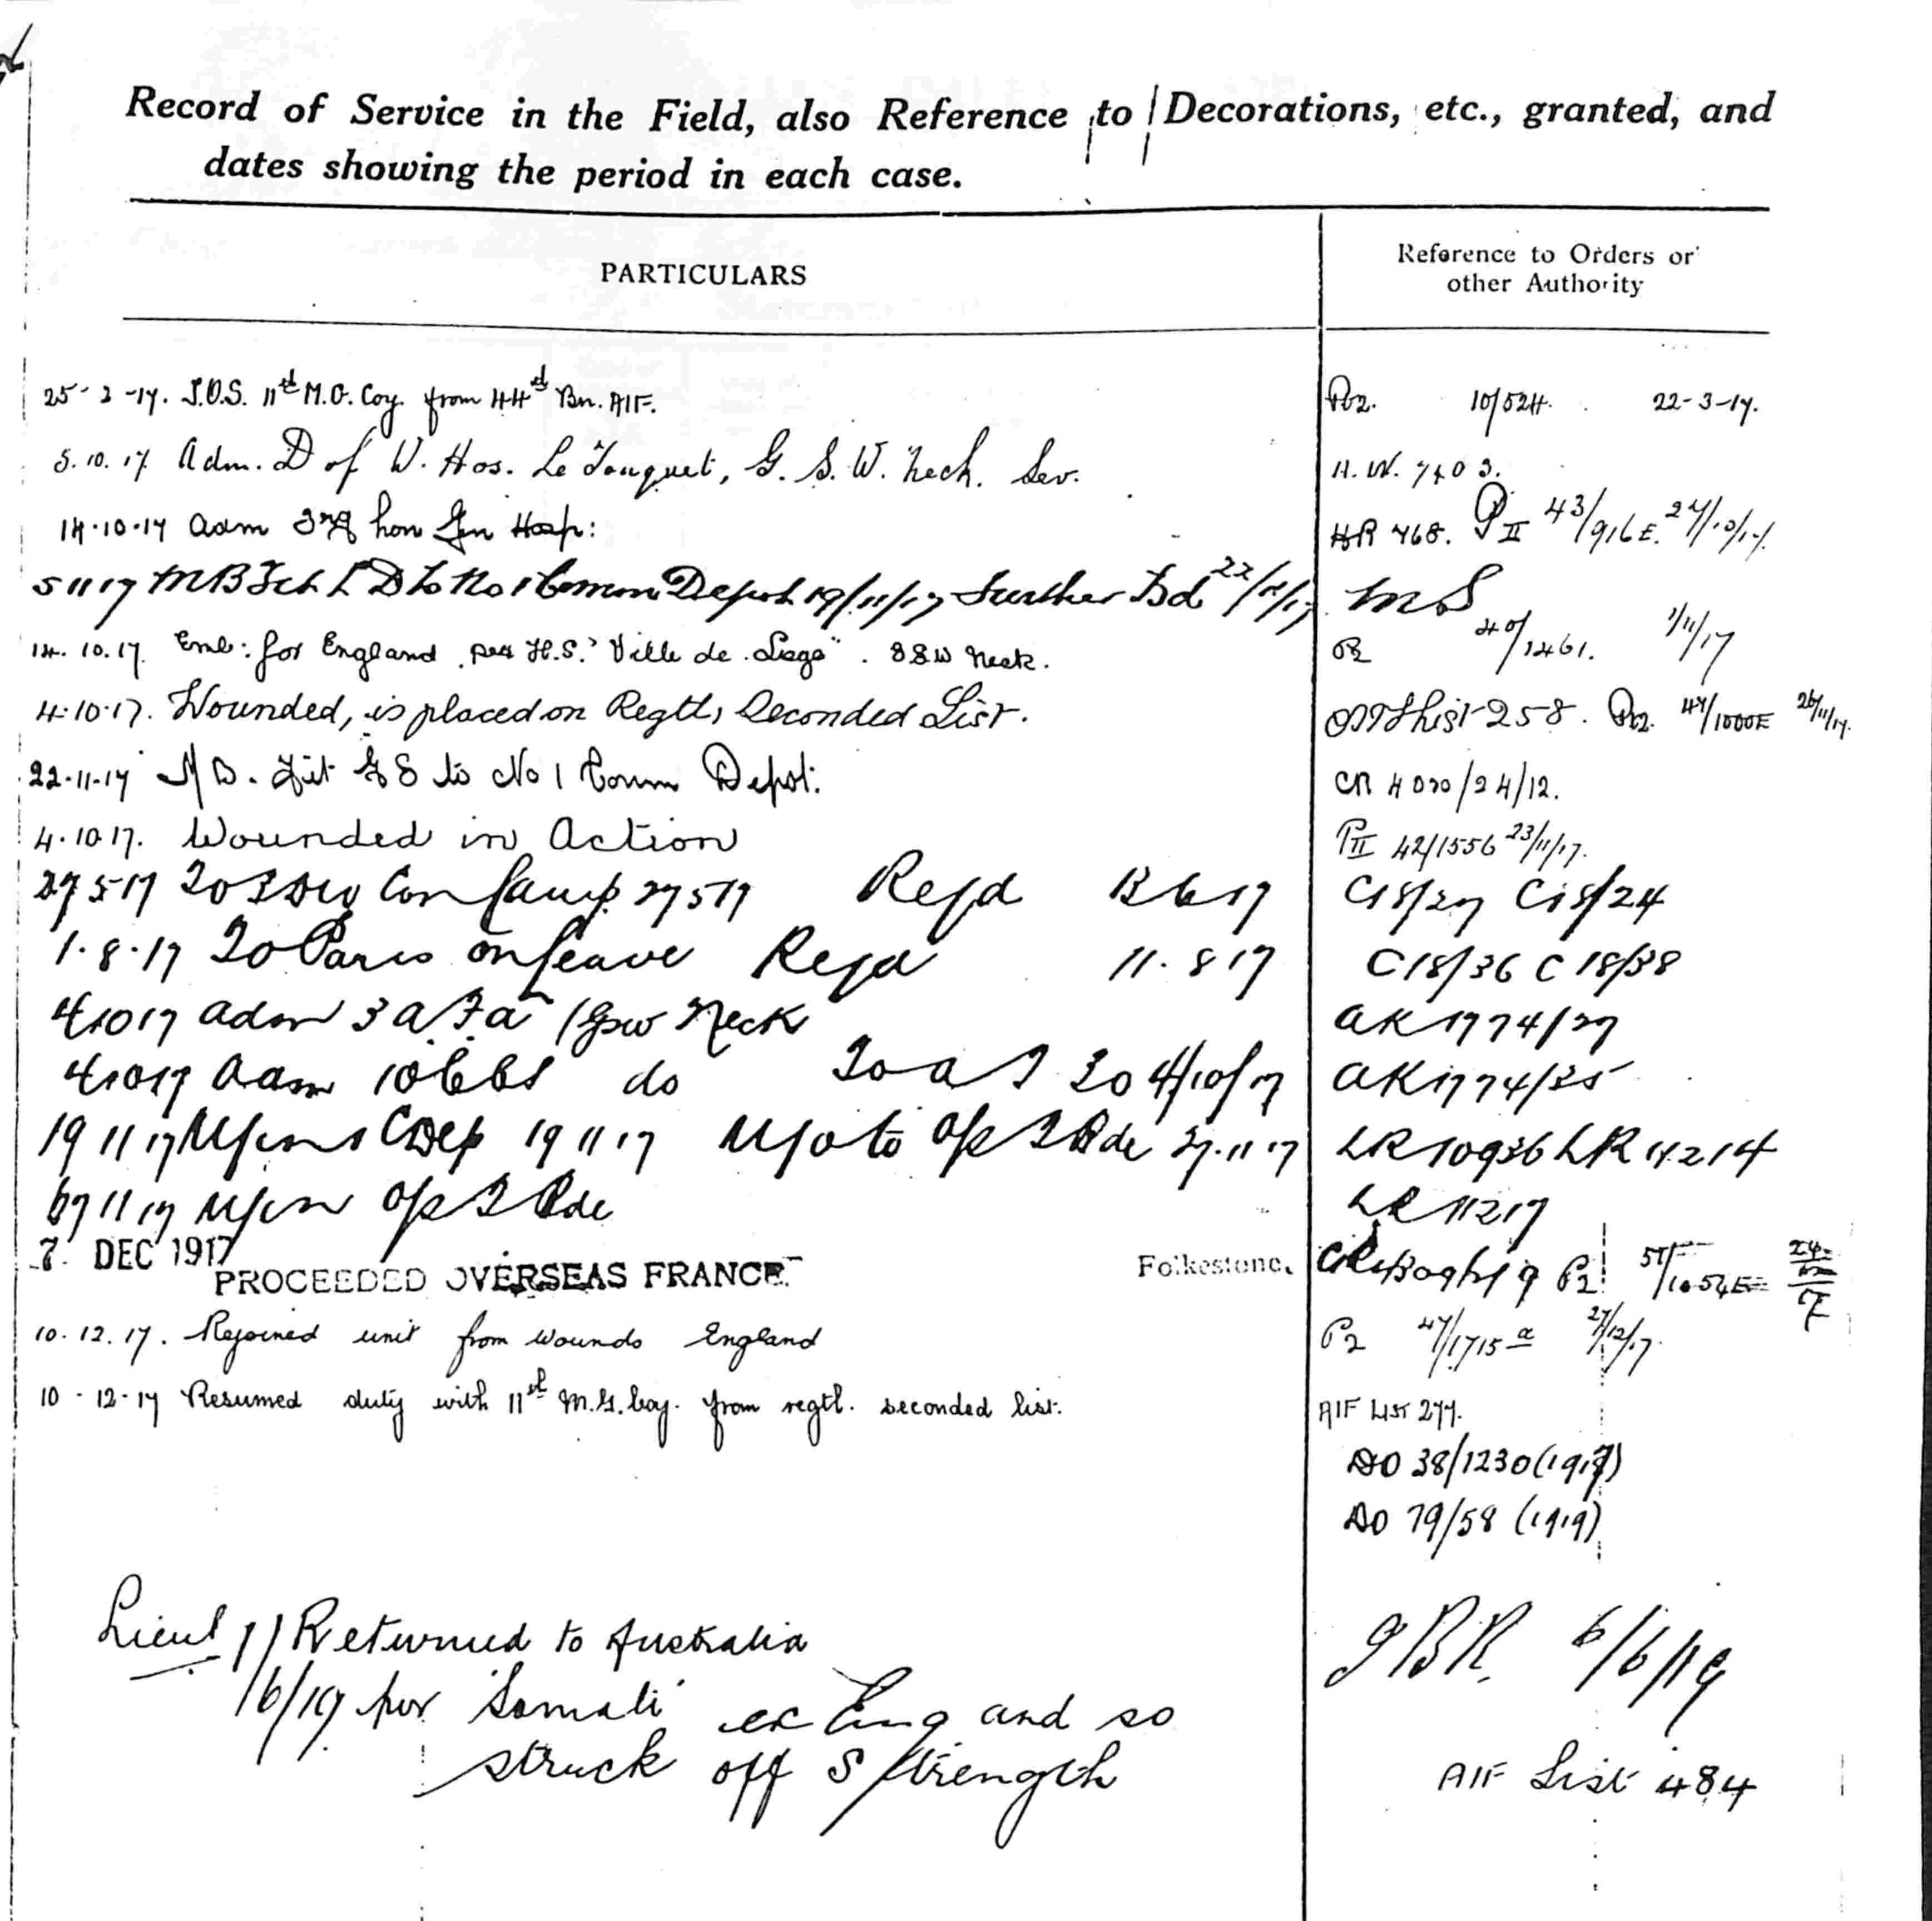 Record of Service in the Field, also Reference to Decorations, etc., granted, and
dates showing the period in each case.
PARTICULARS
Reference to Orders or
other Authority
25-3-17. T.O.S. 11th M.G. Coy. from 44th Bn. AIF. Pt2. 10/524. 22-3-17.
5.10.17. Adm. D of W. Hos. Le Touquet, G.S.W. Neck. Sev. H.W. 7403.
14.10.17 Adm 3rd Lon Gen Hosp: HR 468. PII 43/916E. 27/10/17.
5 11 17 MB to No 1 Comm Depot 19/11/17 Further Bd 22/11/17 MS
14.10.17. Emb: for England per H.S. "Ville de Liege". Neck. P2 40/1461. 1/11/17
4.10.17. Wounded, is placed on Regtl, Seconded List. List 258. Pt2. 47/1000E 26/11/17.
22.11.17 MB. Fit GS to No 1 Comm Depot. CR 4020/24/12.
4.10.17. Wounded in Action PII 42/1556 23/11/17.
27 5 17 To 3 Div Con Camp 27 5 17 Rejd 12 6 17 C18/27 C18/24
1.8.17 To Paris on leave Rejd 11.8.17 C18/36 C18/38
4 10 17 adm 3 a F a (Gsw Neck AK 1774/27
4 10 17 adm 10 CCS do To a T 20 4/10/17 AK 1774/35
19 11 17 M/in 1 C Dep 19 11 17 M/o to O/s T Bde 27.11.17 LR 10936 LR 11214
27 11 17 M/in O/s T Bde LR 11217
7. DEC 1917
PROCEEDED OVERSEAS FRANCE. Folkestone. P2
10.12.17. Rejoined unit from wounds England P2 47/1715a 27/12/17.
10-12-17 Resumed duty with 11th M.G. Coy. from regtl. seconded list. AIF LIST 277.
DO 38/1230 (1917)
DO 79/58 (1919)
Lieut Returned to Australia JBR. 6/6/19
1/6/19 per 'Somali' ex Eng and so
struck off S/trength AIF List 484